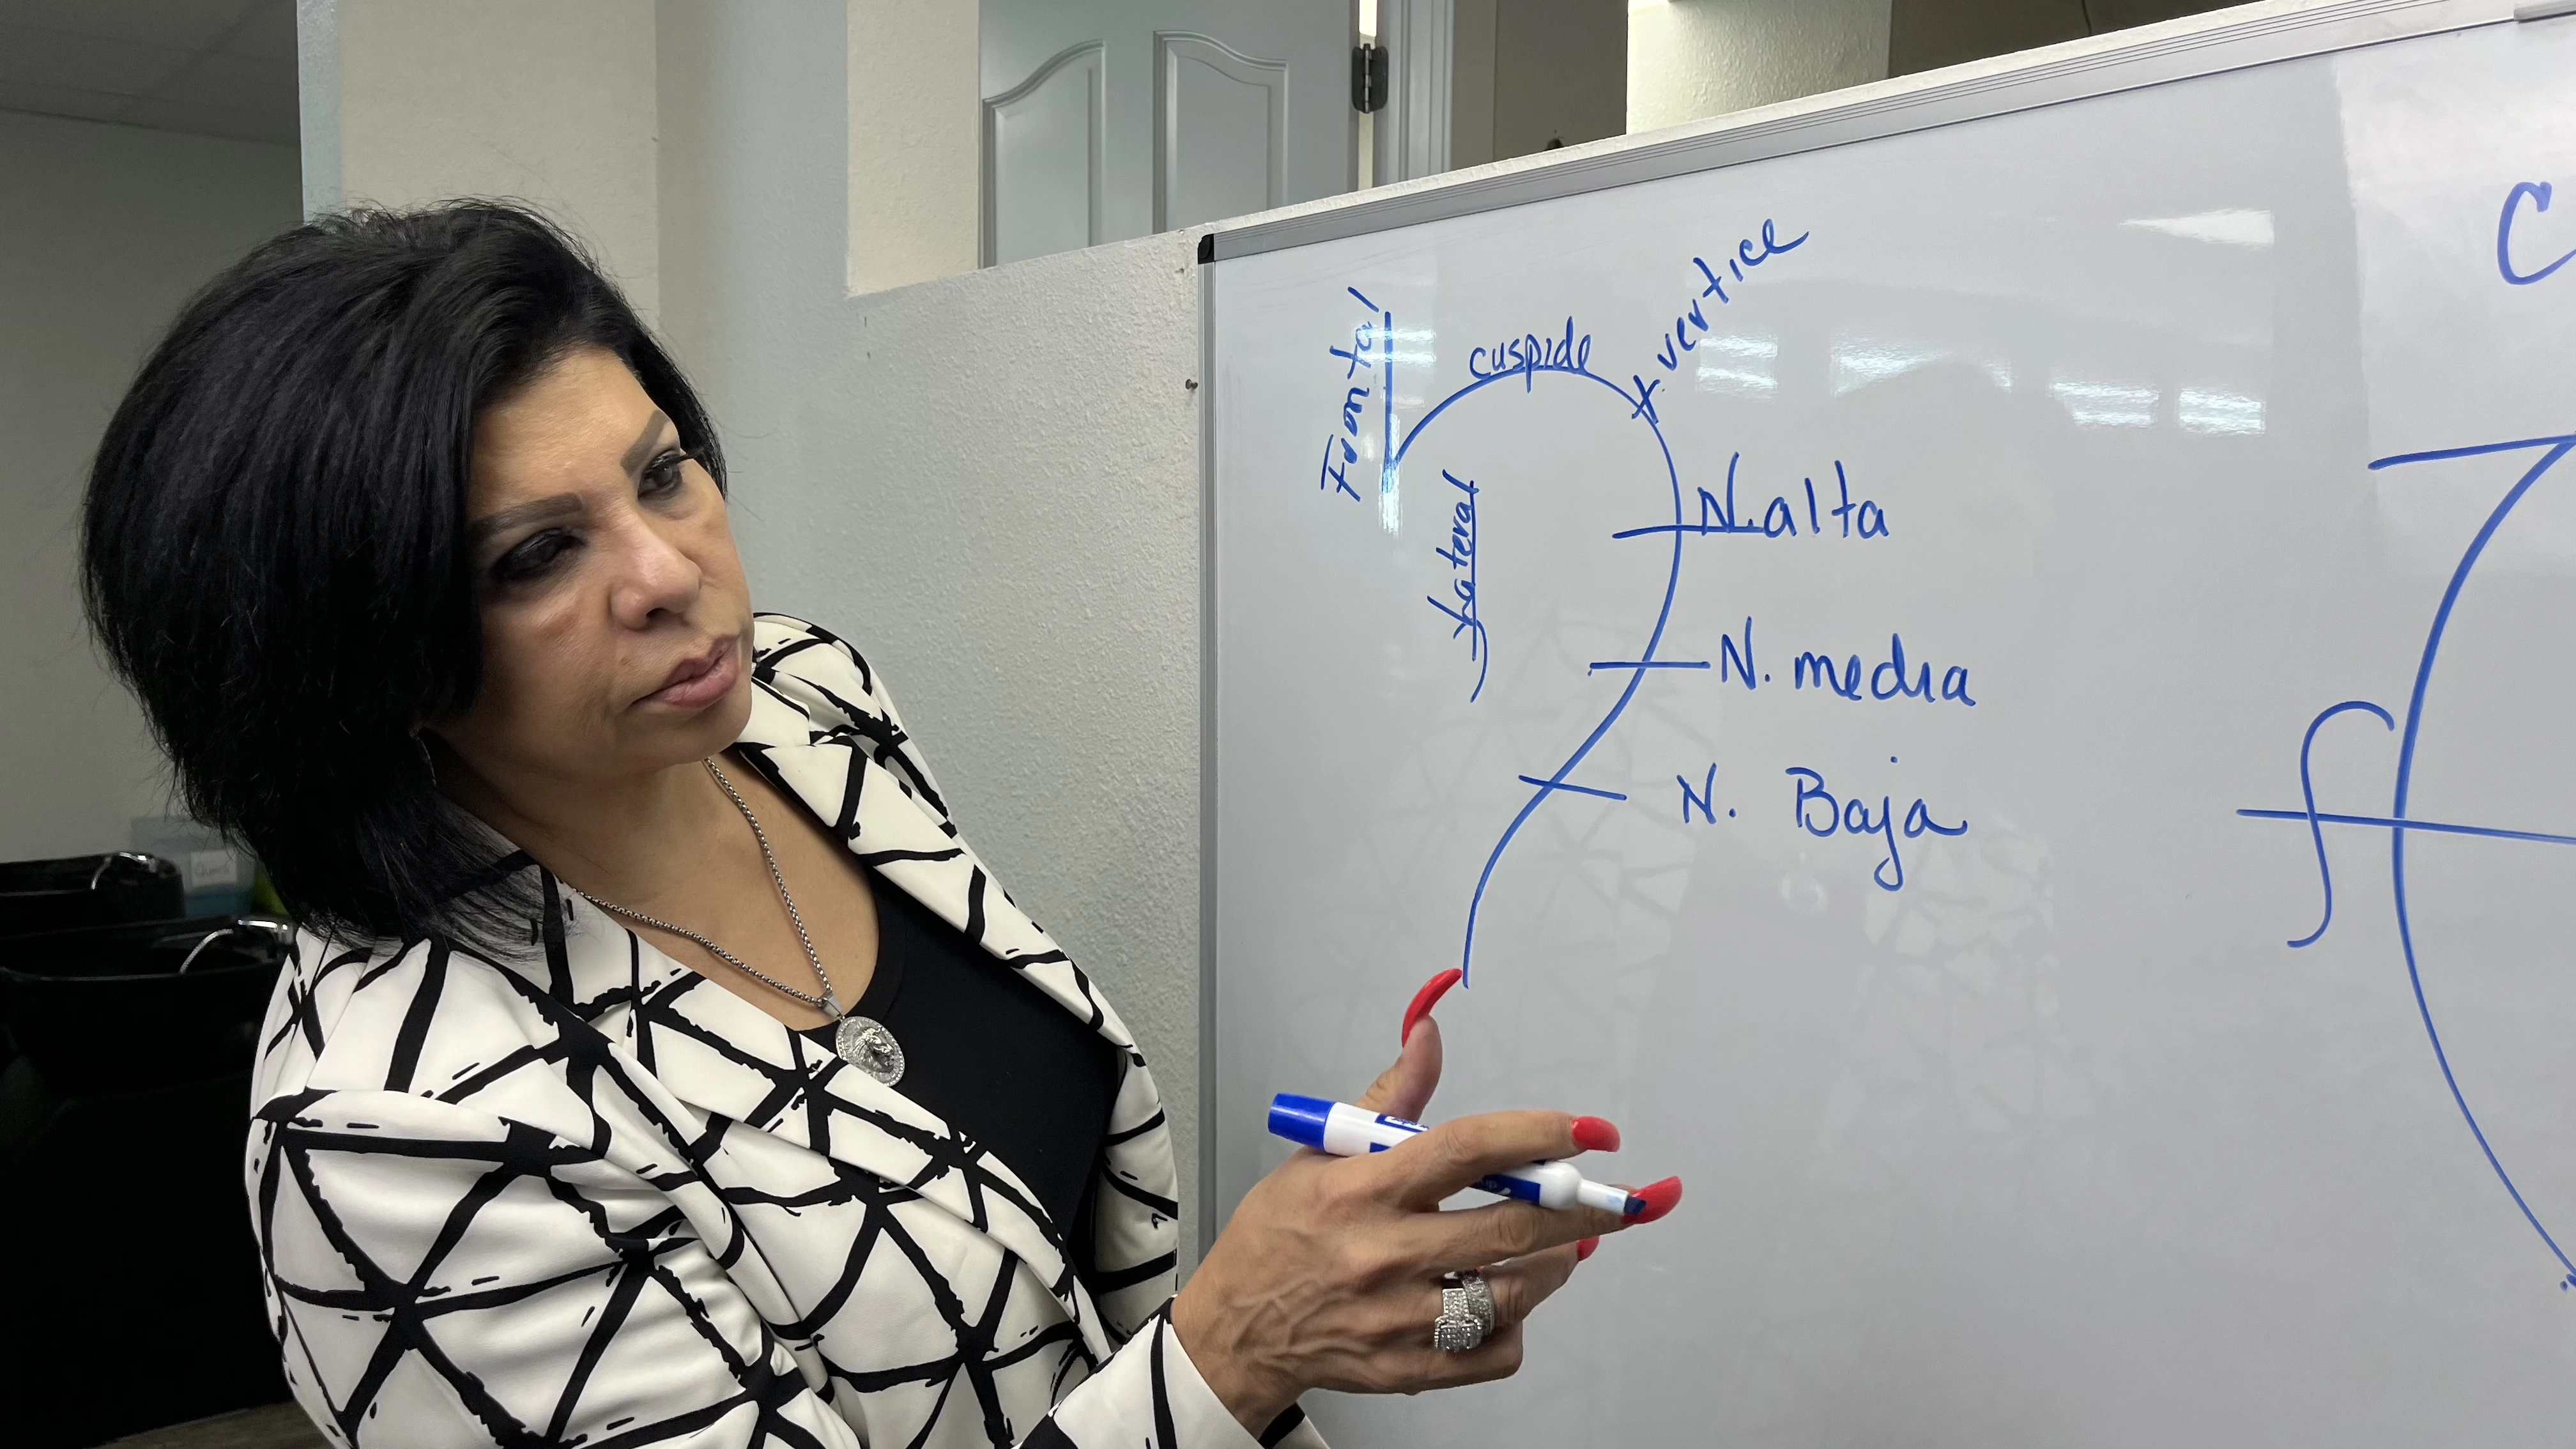 Frontal
cuspide
vertice
Lateral
N. alta
N. media
N. Baja
C